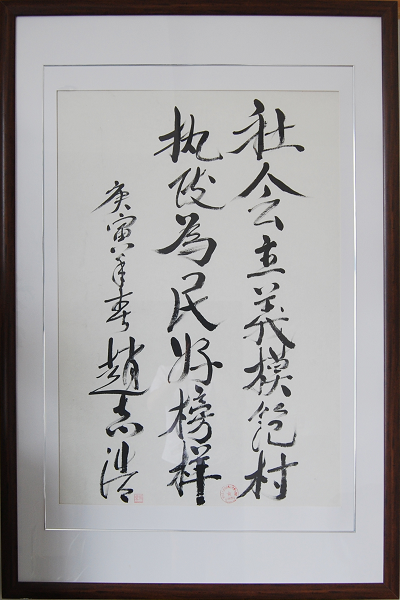 社会主義模范村
执政為民好榜样
庚寅年春趙志浩